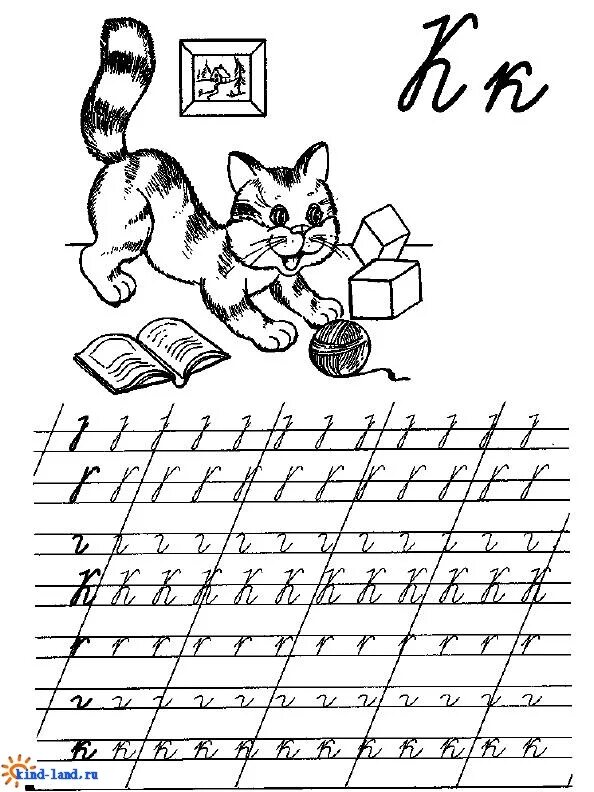 К к
К К К К К К К К К К К К
к к к к к к к к к к к к
kind-land.ru